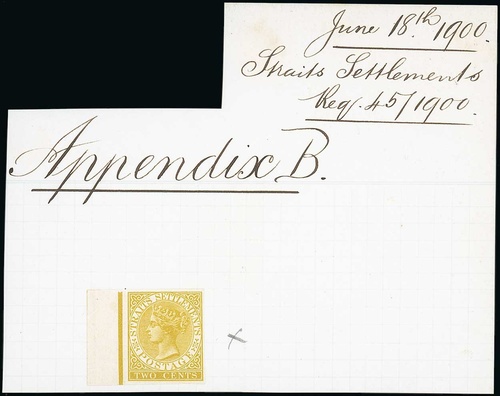 June 18.th 1900.
Straits Settlements
Req. 45/1900.
Appendix B.
STRAITS SETTLEMENTS
POSTAGE
TWO CENTS